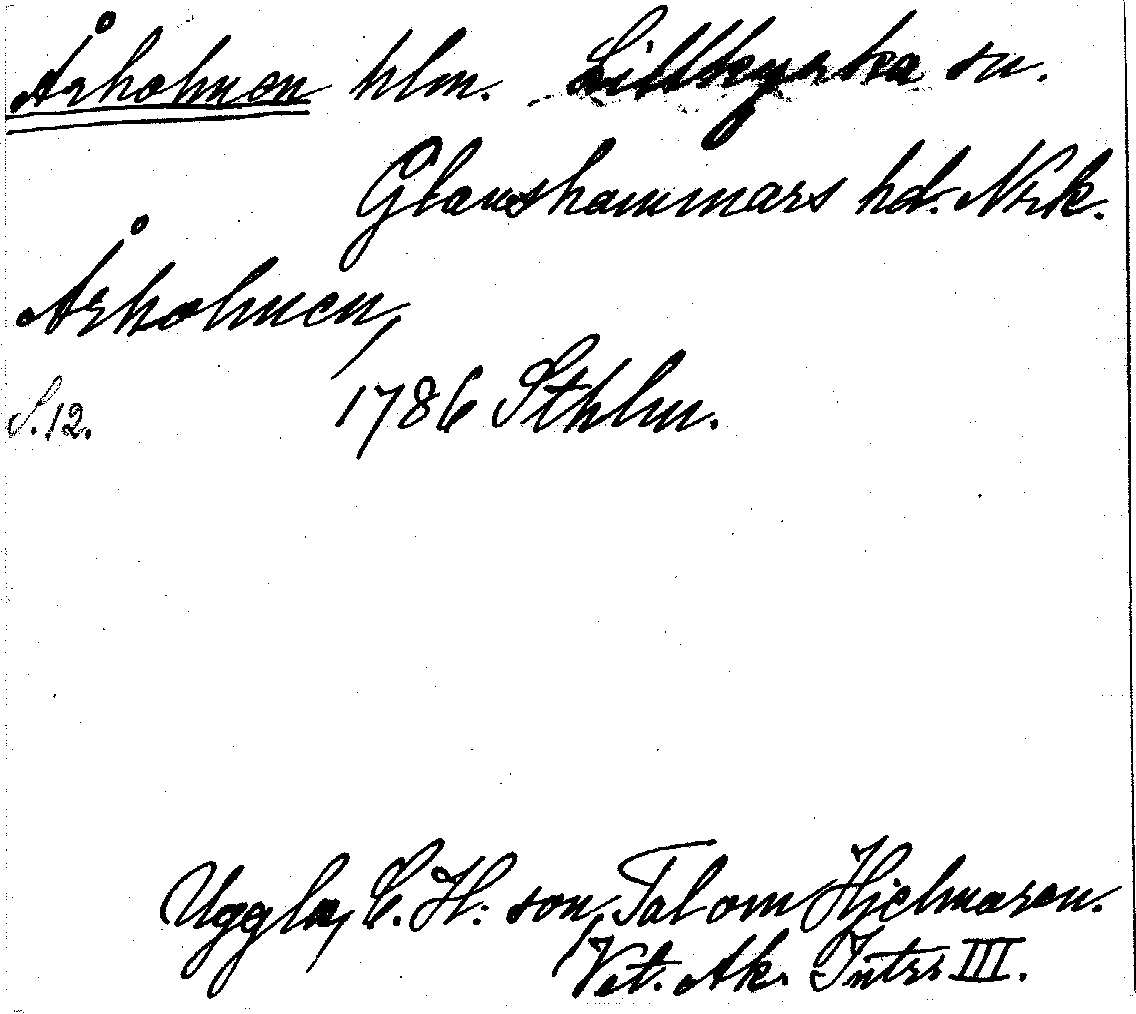 Årholmen hlm. Lillkyrka sn.
Glanshammars hd. Nrk.
Årholmen,
S. 12. 1786 Sthlm.
Uggla, C. H:son, Tal om Hjelmaren.
Vet. Ak. Intr. III.